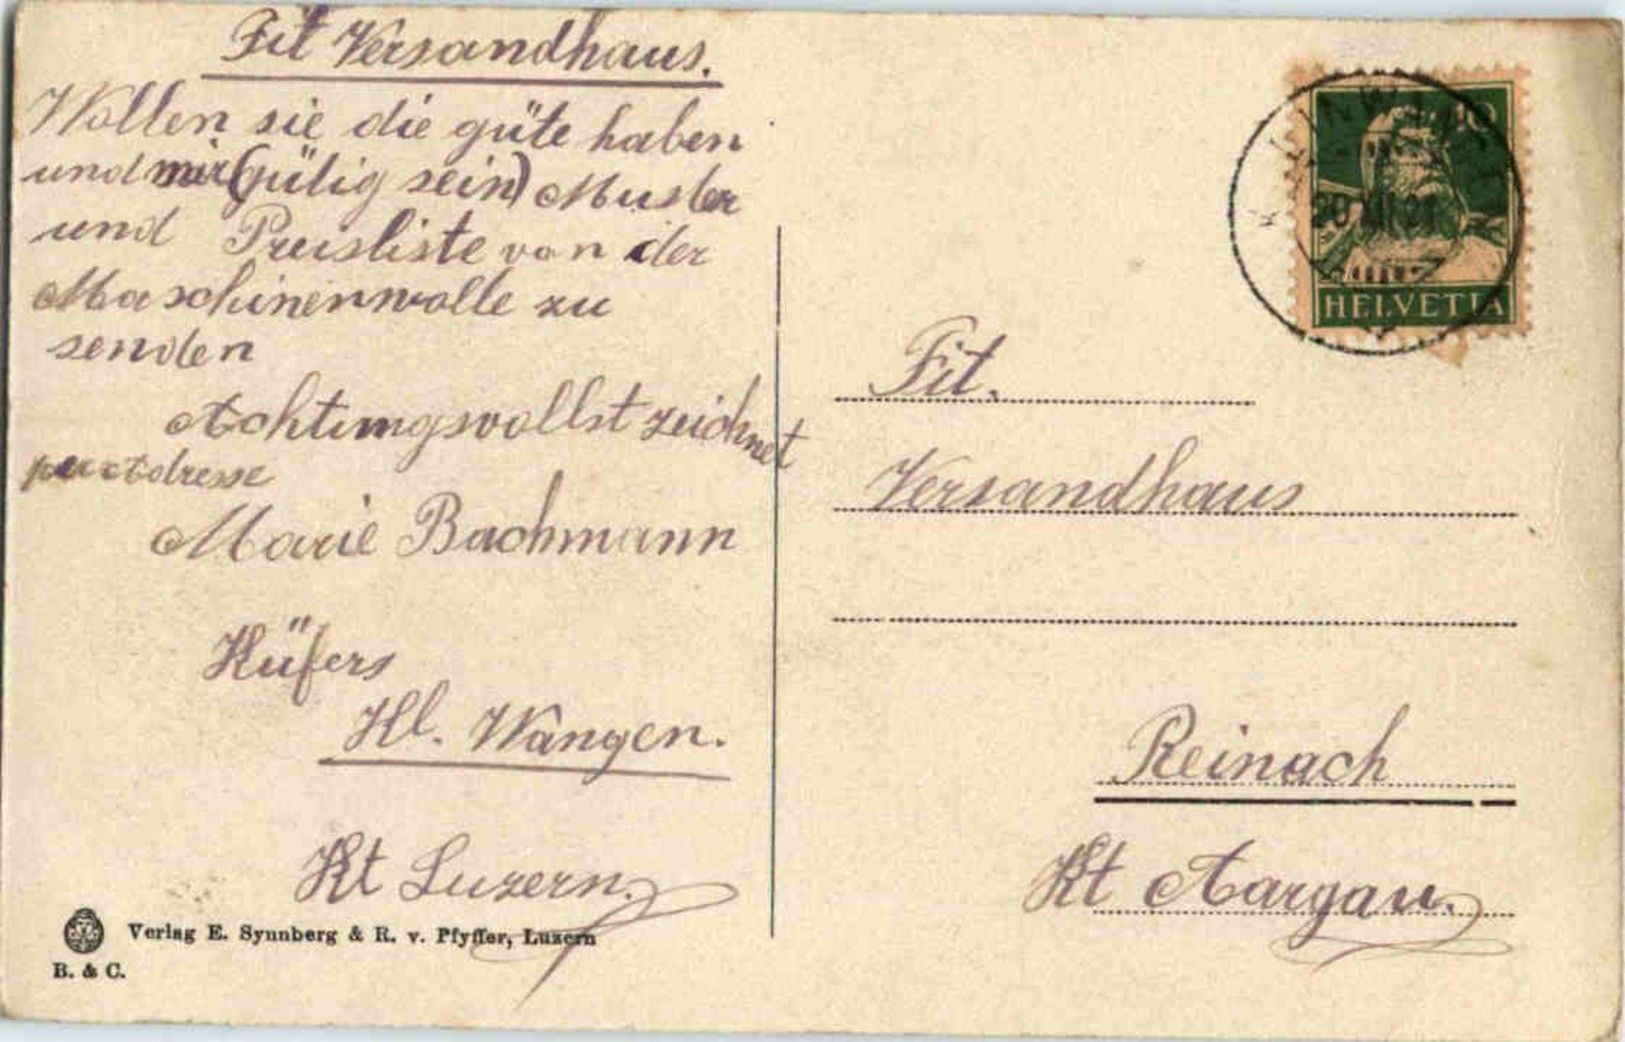 Fit Versandhaus.
Wollen sie die güte haben
und mir (gütig sein) Muster
und Preisliste von der
Maschinenwolle zu
senden
Achtungsvollst zeichnet
per Adresse
Marie Bachmann
Hüfers
Kl. Wangen.
Kt Luzern.
Verlag E. Synnberg & R. v. Pfyffer, Luzern
B. & C.
10
HELVETIA
Fit.
Versandhaus
Reinach
Kt Aargau.